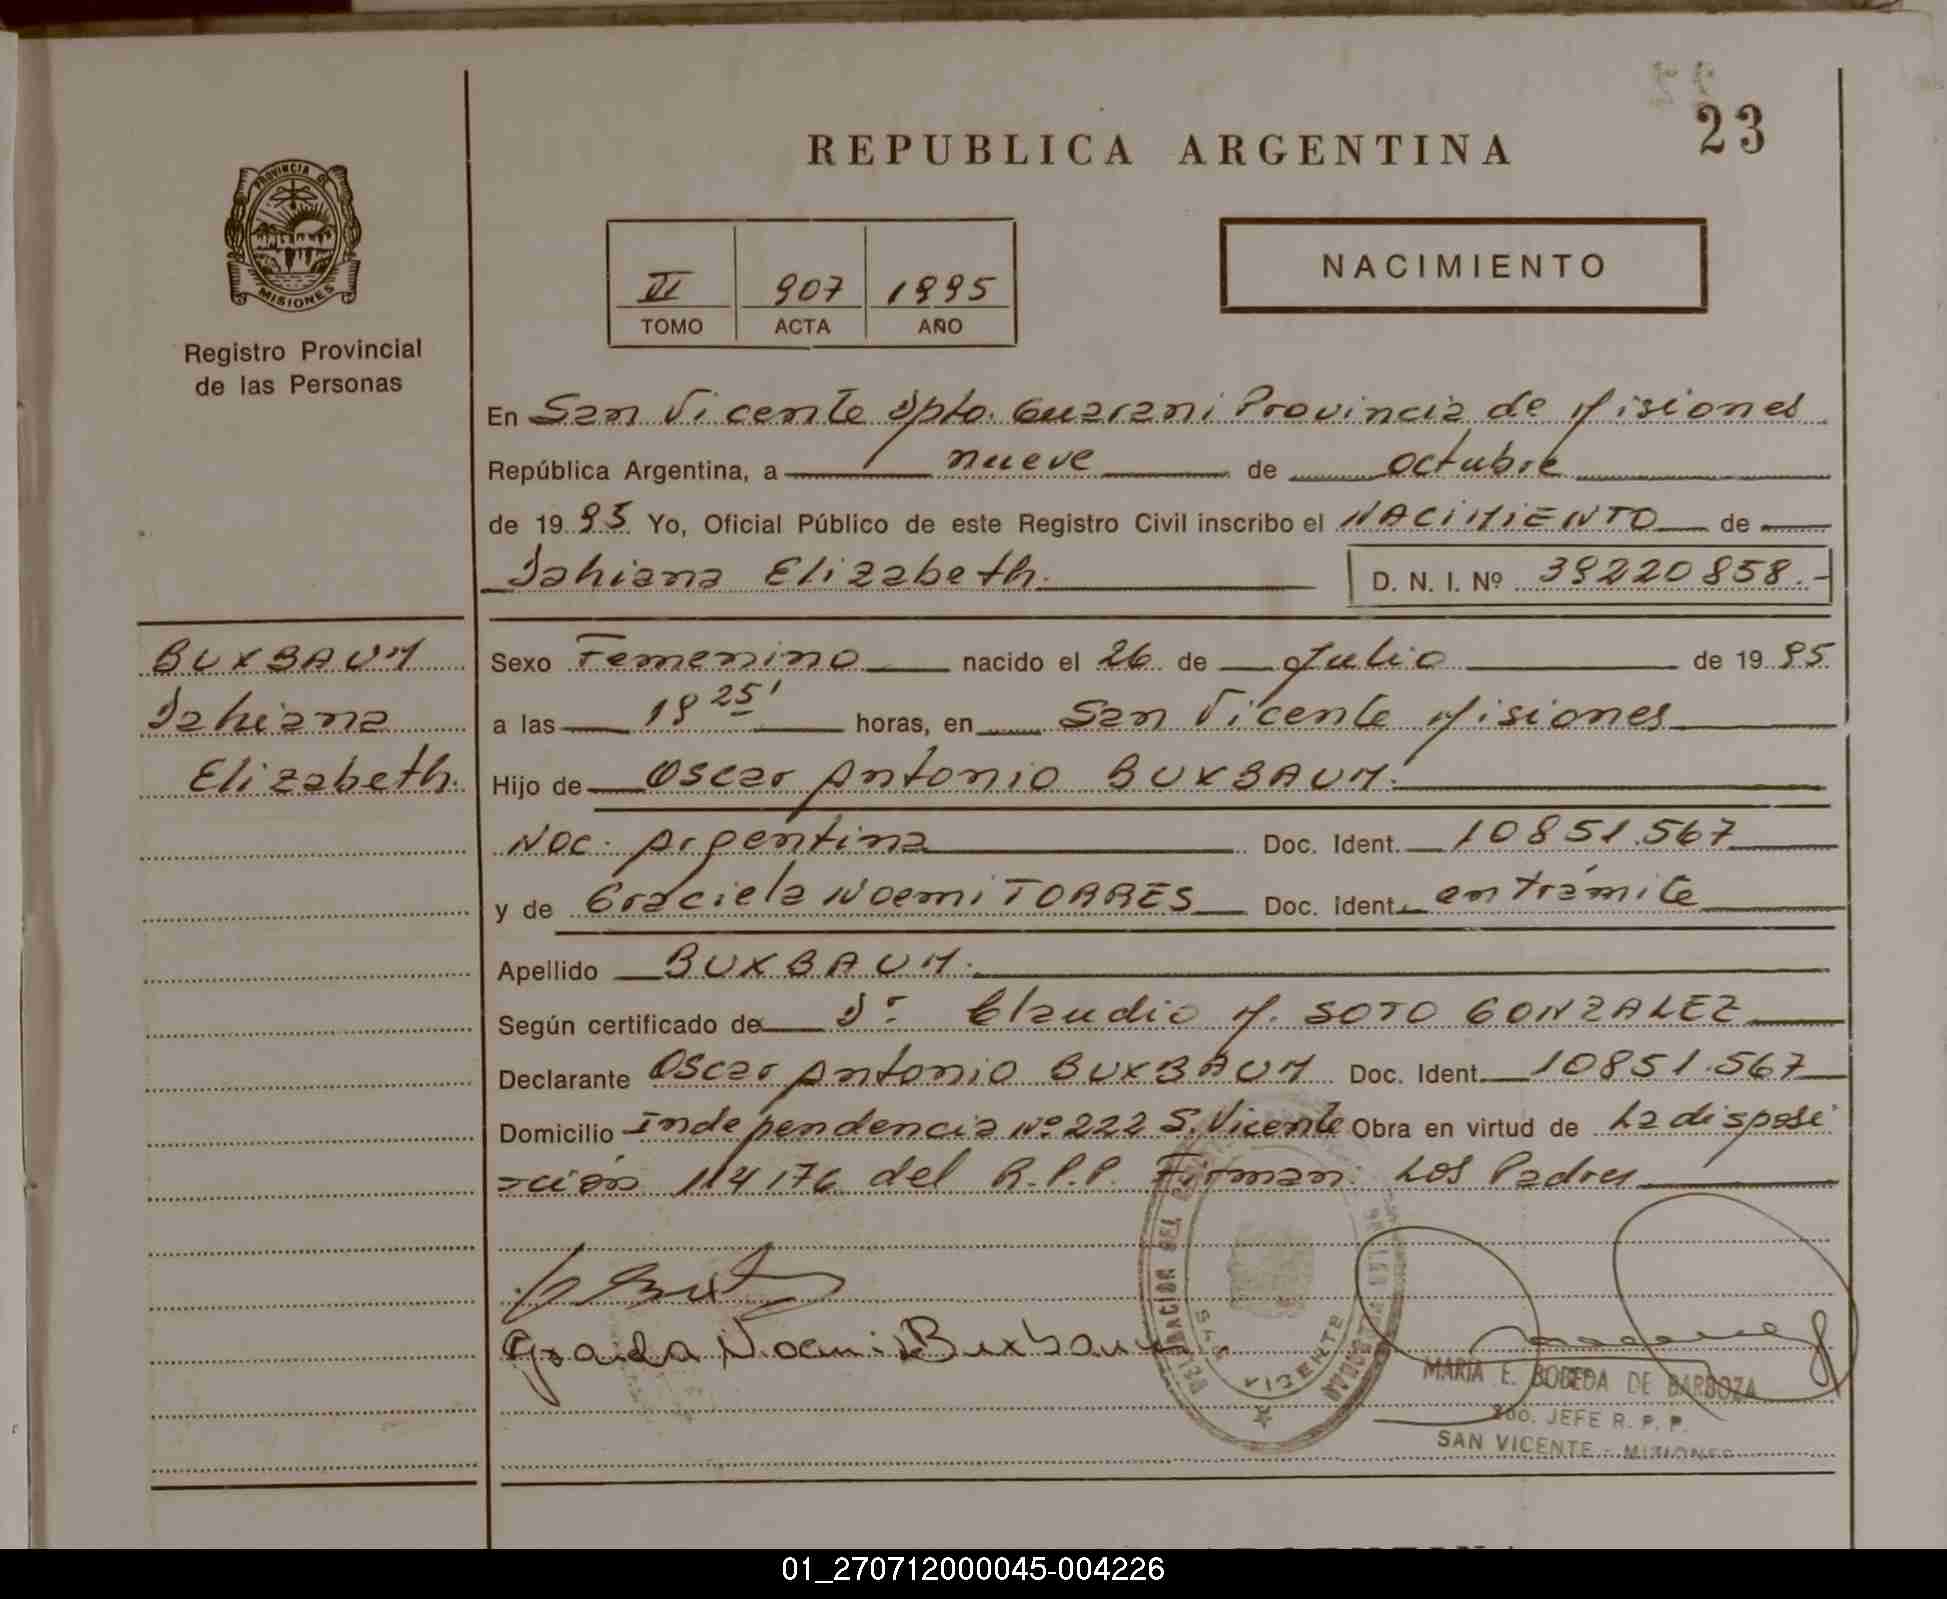 23
REPUBLICA ARGENTINA
PROVINCIA DE
MISIONES
Registro Provincial
de las Personas
VI 907 1995
TOMO ACTA AÑO
NACIMIENTO
En San Vicente Dpto. Guarani Provincia de Misiones
República Argentina, a nueve de octubre
de 1995 Yo, Oficial Público de este Registro Civil inscribo el NACIMIENTO de
Tahiana Elizabeth. D. N. I. Nº 39220858.-
BUXBAUM
Tahiana
Elizabeth.
Sexo Femenino nacido el 26 de Julio de 1995
a las 19 25' horas, en San Vicente Misiones
Hijo de Oscar Antonio BUXBAUM.
Nac. Argentina Doc. Ident. 10851.567
y de Graciela Noemi TORRES Doc. Ident. en trámite
Apellido BUXBAUM.
Según certificado de Dr. Claudio M. SOTO GONZALEZ
Declarante Oscar Antonio BUXBAUM Doc. Ident. 10851.567
Domicilio Independencia Nº 222 S. Vicente Obra en virtud de La disposi
ción 114176 del R.P.P. Firman: Los Padres
Noemi Buxbaum
DELEGACION DEL
VICENTE
MARIA E. BOBEDA DE BARBOZA
2do. JEFE R. P. P.
SAN VICENTE - MISIONES
01_270712000045-004226